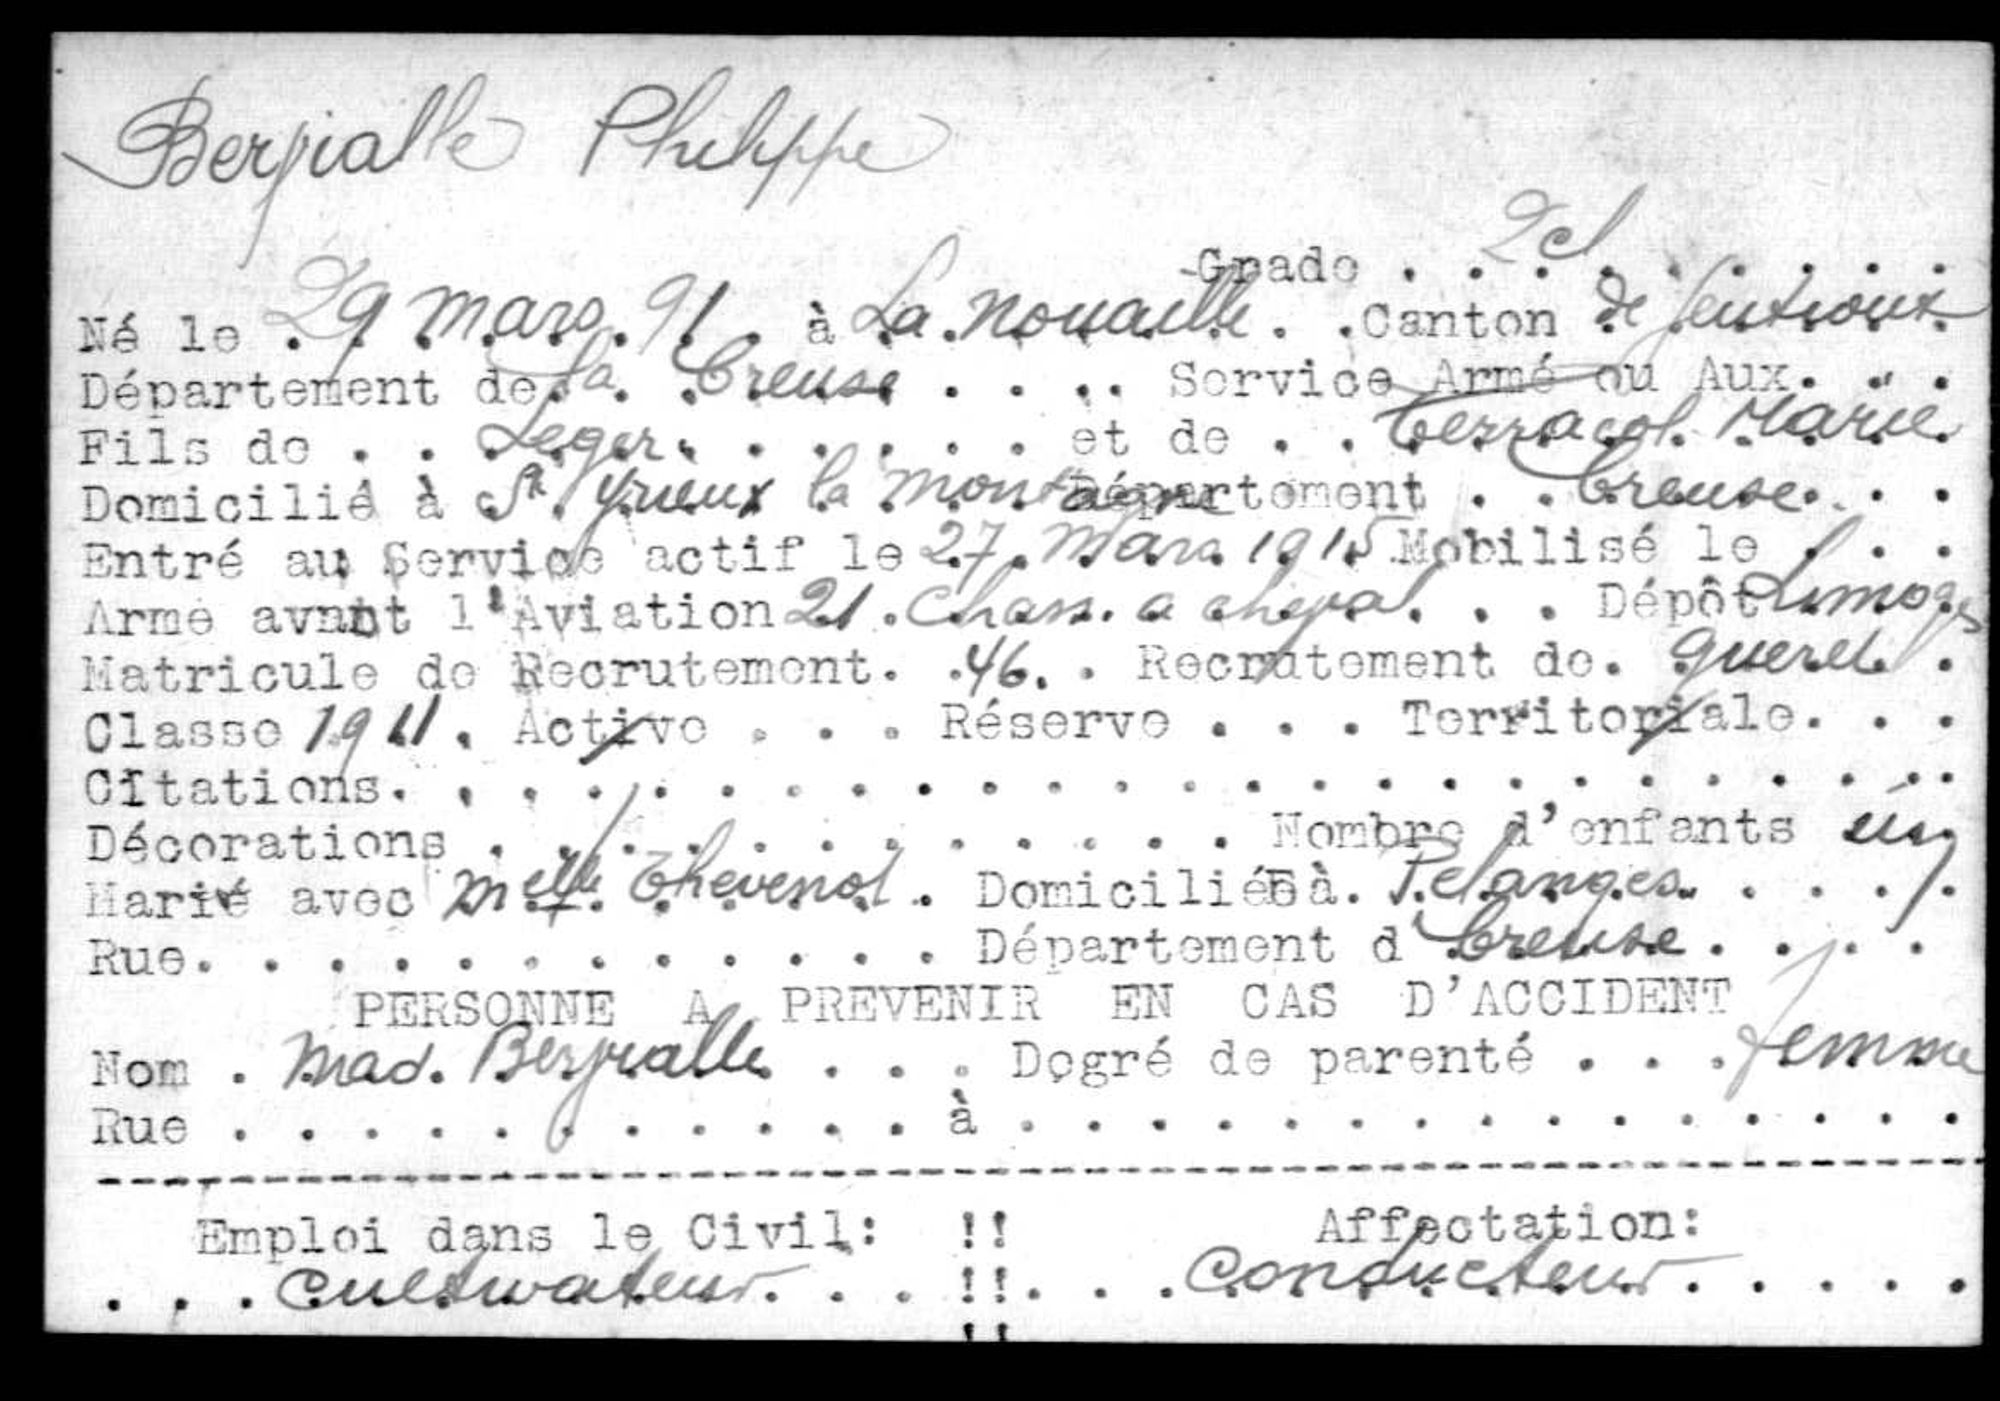 Berpialle Philippe
Grade . . 2cl . . . . .
Né le 29 mars 91 . à La Nouaille . . Canton de Gentioux
Département de la Creuse . . . . Service Armé ou Aux. . .
Fils de . . Leger . . . . . et de . . Terracol Marie
Domicilié à St Yrieux la Montagne Département . . Creuse . . .
Entré au Service actif le 27 Mars 1915 Mobilisé le . . .
Arme avant l'Aviation 21 . Chass. a cheval . . . Dépôt Limoges
Matricule de Recrutement. . 46. . Recrutement de. Gueret .
Classe 1911 . Active . . . Réserve . . . Territoriale. . .
Citations. . . . . . . . . . . . . . . . . . . . . . . .
Décorations . . . . . . . . . . . . Nombre d'enfants un
Marié avec Melle Thevenot . Domiciliée à. Pelanges . . . .
Rue. . . . . . . . . . . . Département d Creuse . . . .
PERSONNE A PREVENIR EN CAS D'ACCIDENT
Nom . Mad. Berpialle . . . Degré de parenté . . . femme
Rue . . . . . . . . . . . à . . . . . . . . . . . . . . .
Emploi dans le Civil: !! Affectation:
. . . cultivateur . . . !! . . . Conducteur . . . . .
!!